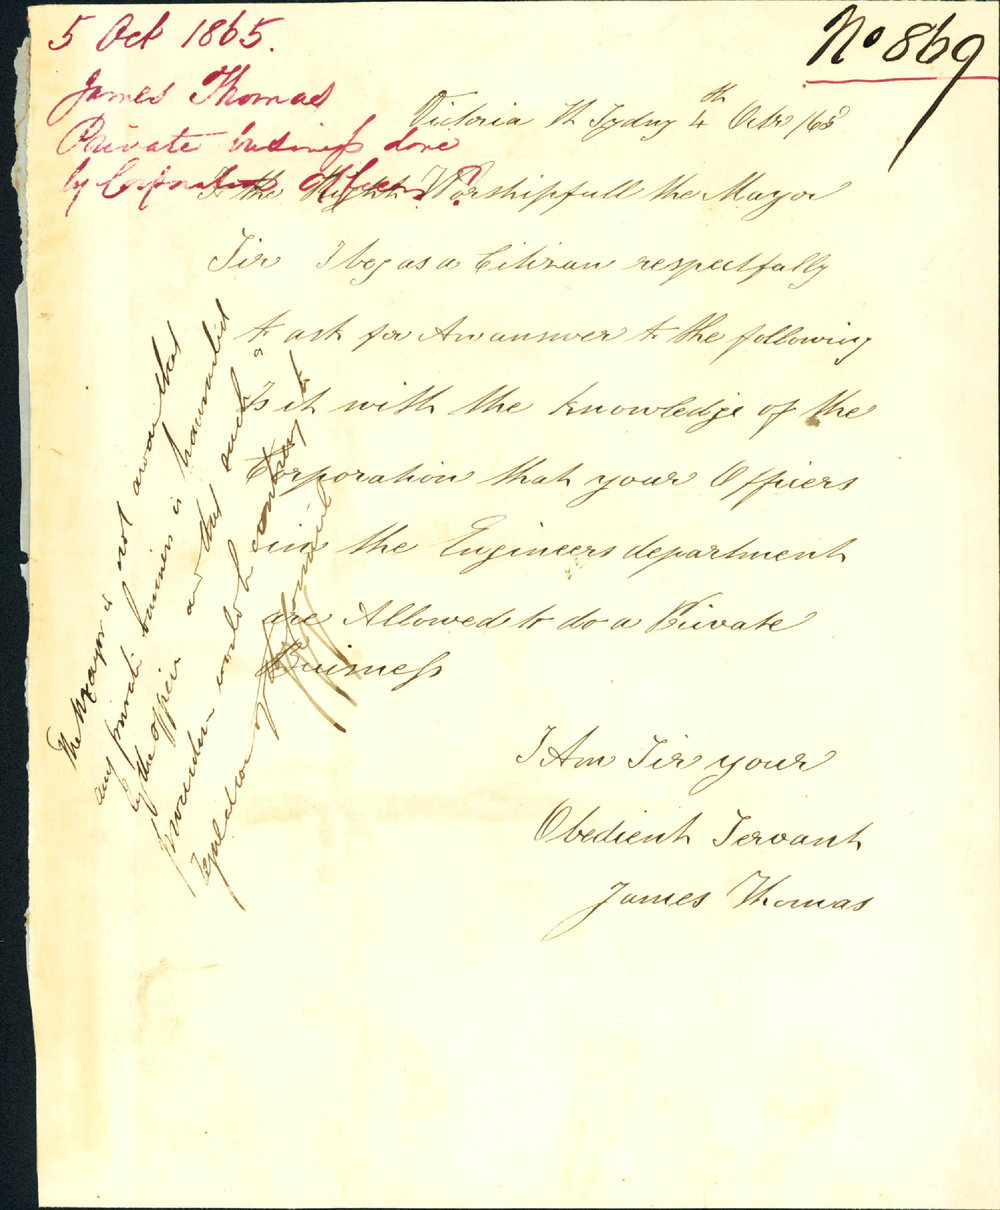 No 869
5 Oct 1865.
James Thomas
Private business done
by Corporation Officers?
Victoria St Sydny 4th Octr /65
To the Right Worshipfull the Mayor
Sir I beg as a Citizan respectfully
to ask for An answer to the following
Is it with the Knowledge of the
Corporation that your Officers
in the Engineers department
are Allowed to do a Private
Buisness
I Am Sir your
Obedient Servant
James Thomas
The Mayor is not aware that
any private business is transacted
by the officers and that such a
procedure would be contrary to
regulation